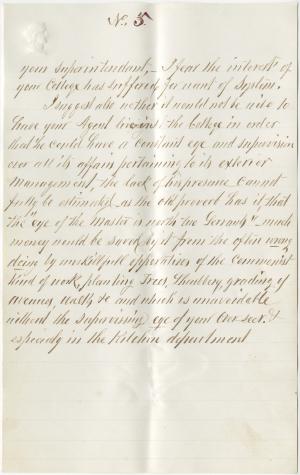 No. 5.
your Superintendant, I fear the interest of
your College has suffered for want of System.
I suggest also wether it would not be wise to
have your Agent live in the College in order
that he could have a constant eye and supervision
over all its affairs pertaining to its exterior
Management, the lack of his presence cannot
fully be estimated as the old proverb has it that
the "eye of the Master is worth two Servants" much
money would be saved by it from the often wrong
doing by unskillfull opperatives of the Commonest
kind of work, planting Trees, Shrubbery, grading of
avenues, walks &c and which is unavoidable
without the supervising eye of your Over seer. &
especially in the Kitchen department